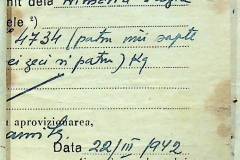 nit dela
ele")
4734 (patru mii șapte
zeci și patru) Kg
aprovizionarea,
Data 22/III 1942